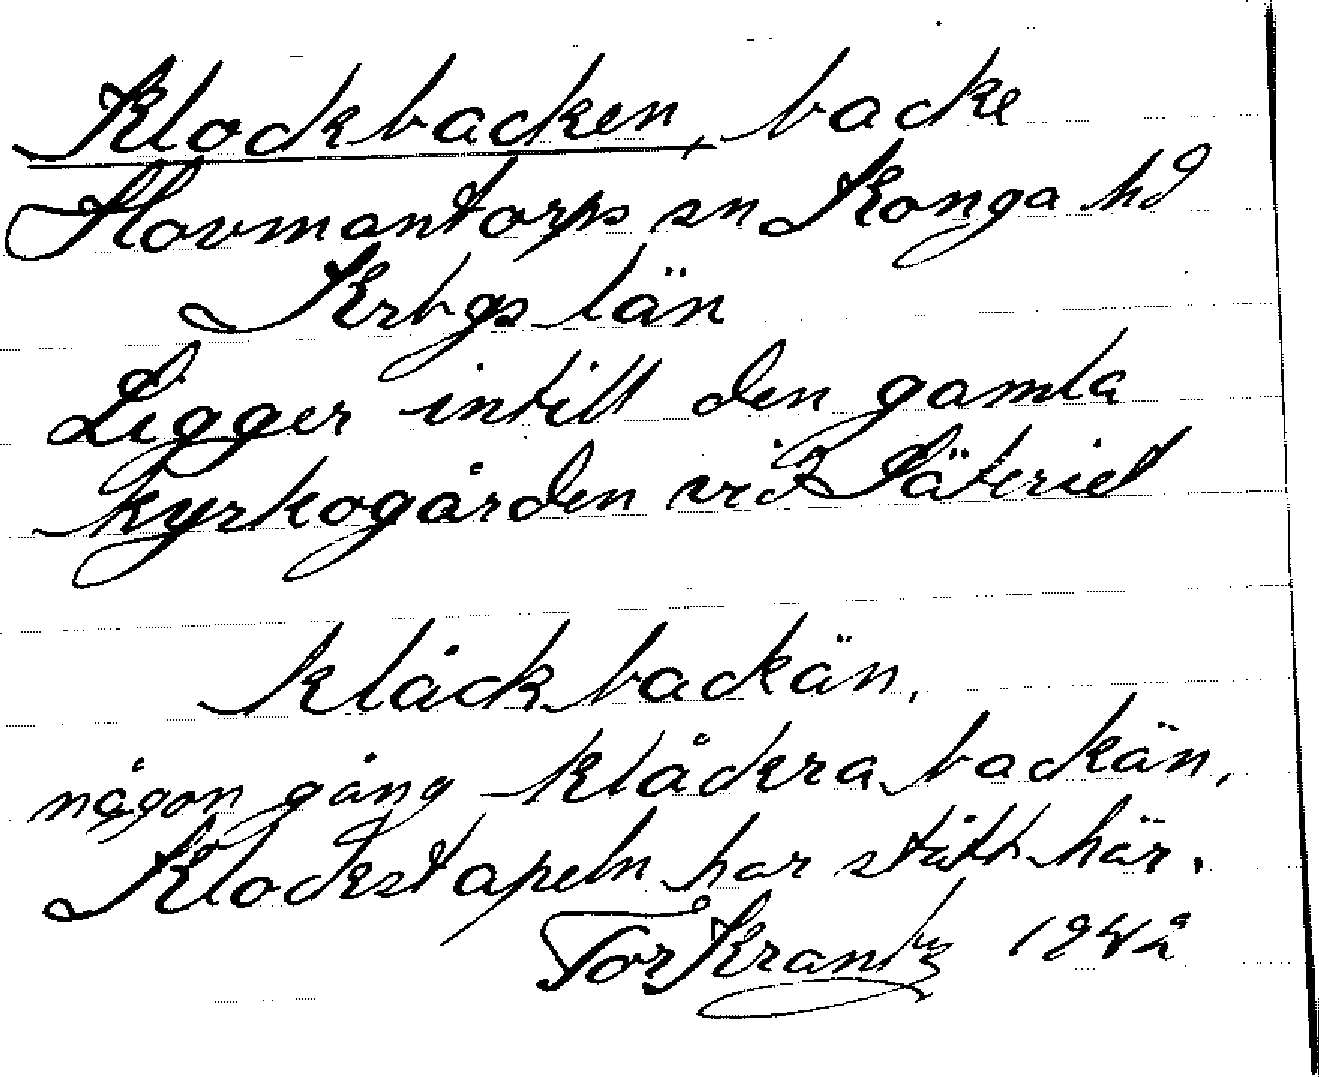 Klockbacken, backe
Hovmantorps sn Konga hd
Krbgs län
Ligger intill den gamla
kyrkogården vid Säteriet
klåckbackän,
någon gång klåckra backän,
Klockstapeln har stått här.
Tor Krantz 1942